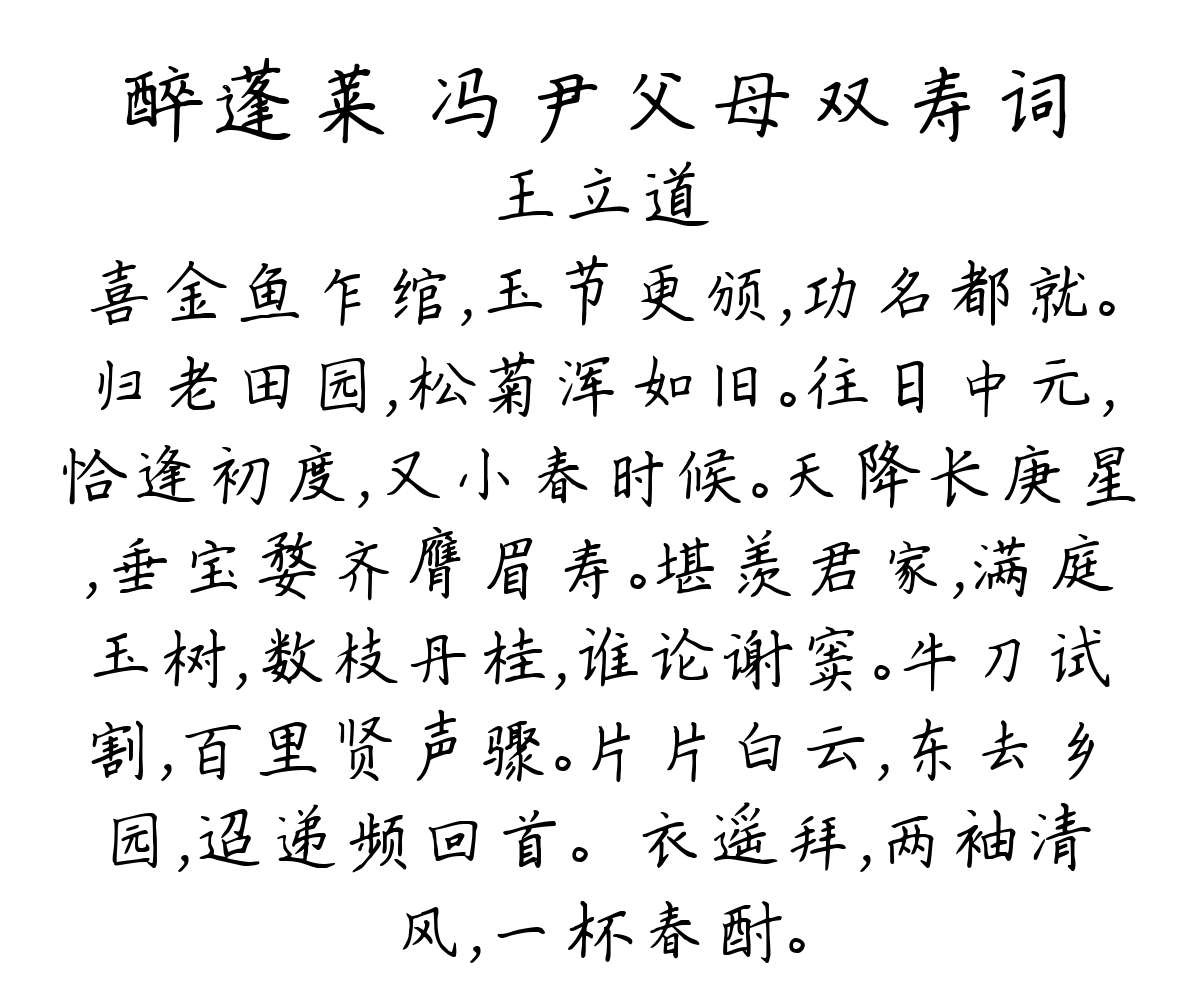 醉蓬莱 冯尹父母双寿词
王立道
喜金鱼乍绾,玉节更颁,功名都就。
归老田园,松菊浑如旧。往日中元,
恰逢初度,又小春时候。天降长庚星
,垂宝婺齐膺眉寿。堪羡君家,满庭
玉树,数枝丹桂,谁论谢窦。牛刀试
割,百里贤声骤。片片白云,东去乡
园,迢递频回首。 衣遥拜,两袖清
风,一杯春酎。